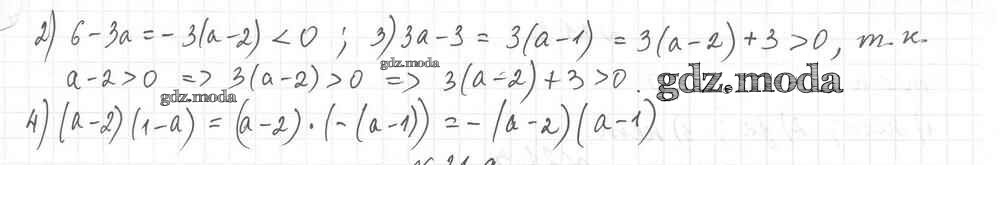 2) 6-3a=-3(a-2)<0; 3) 3a-3=3(a-1)=3(a-2)+3>0, т.к.
gdz.moda
a-2>0 => 3(a-2)>0 => 3(a-2)+3>0.
gdz.moda
gdz.moda
4) (a-2)(1-a)=(a-2)·(-(a-1))=-(a-2)(a-1)